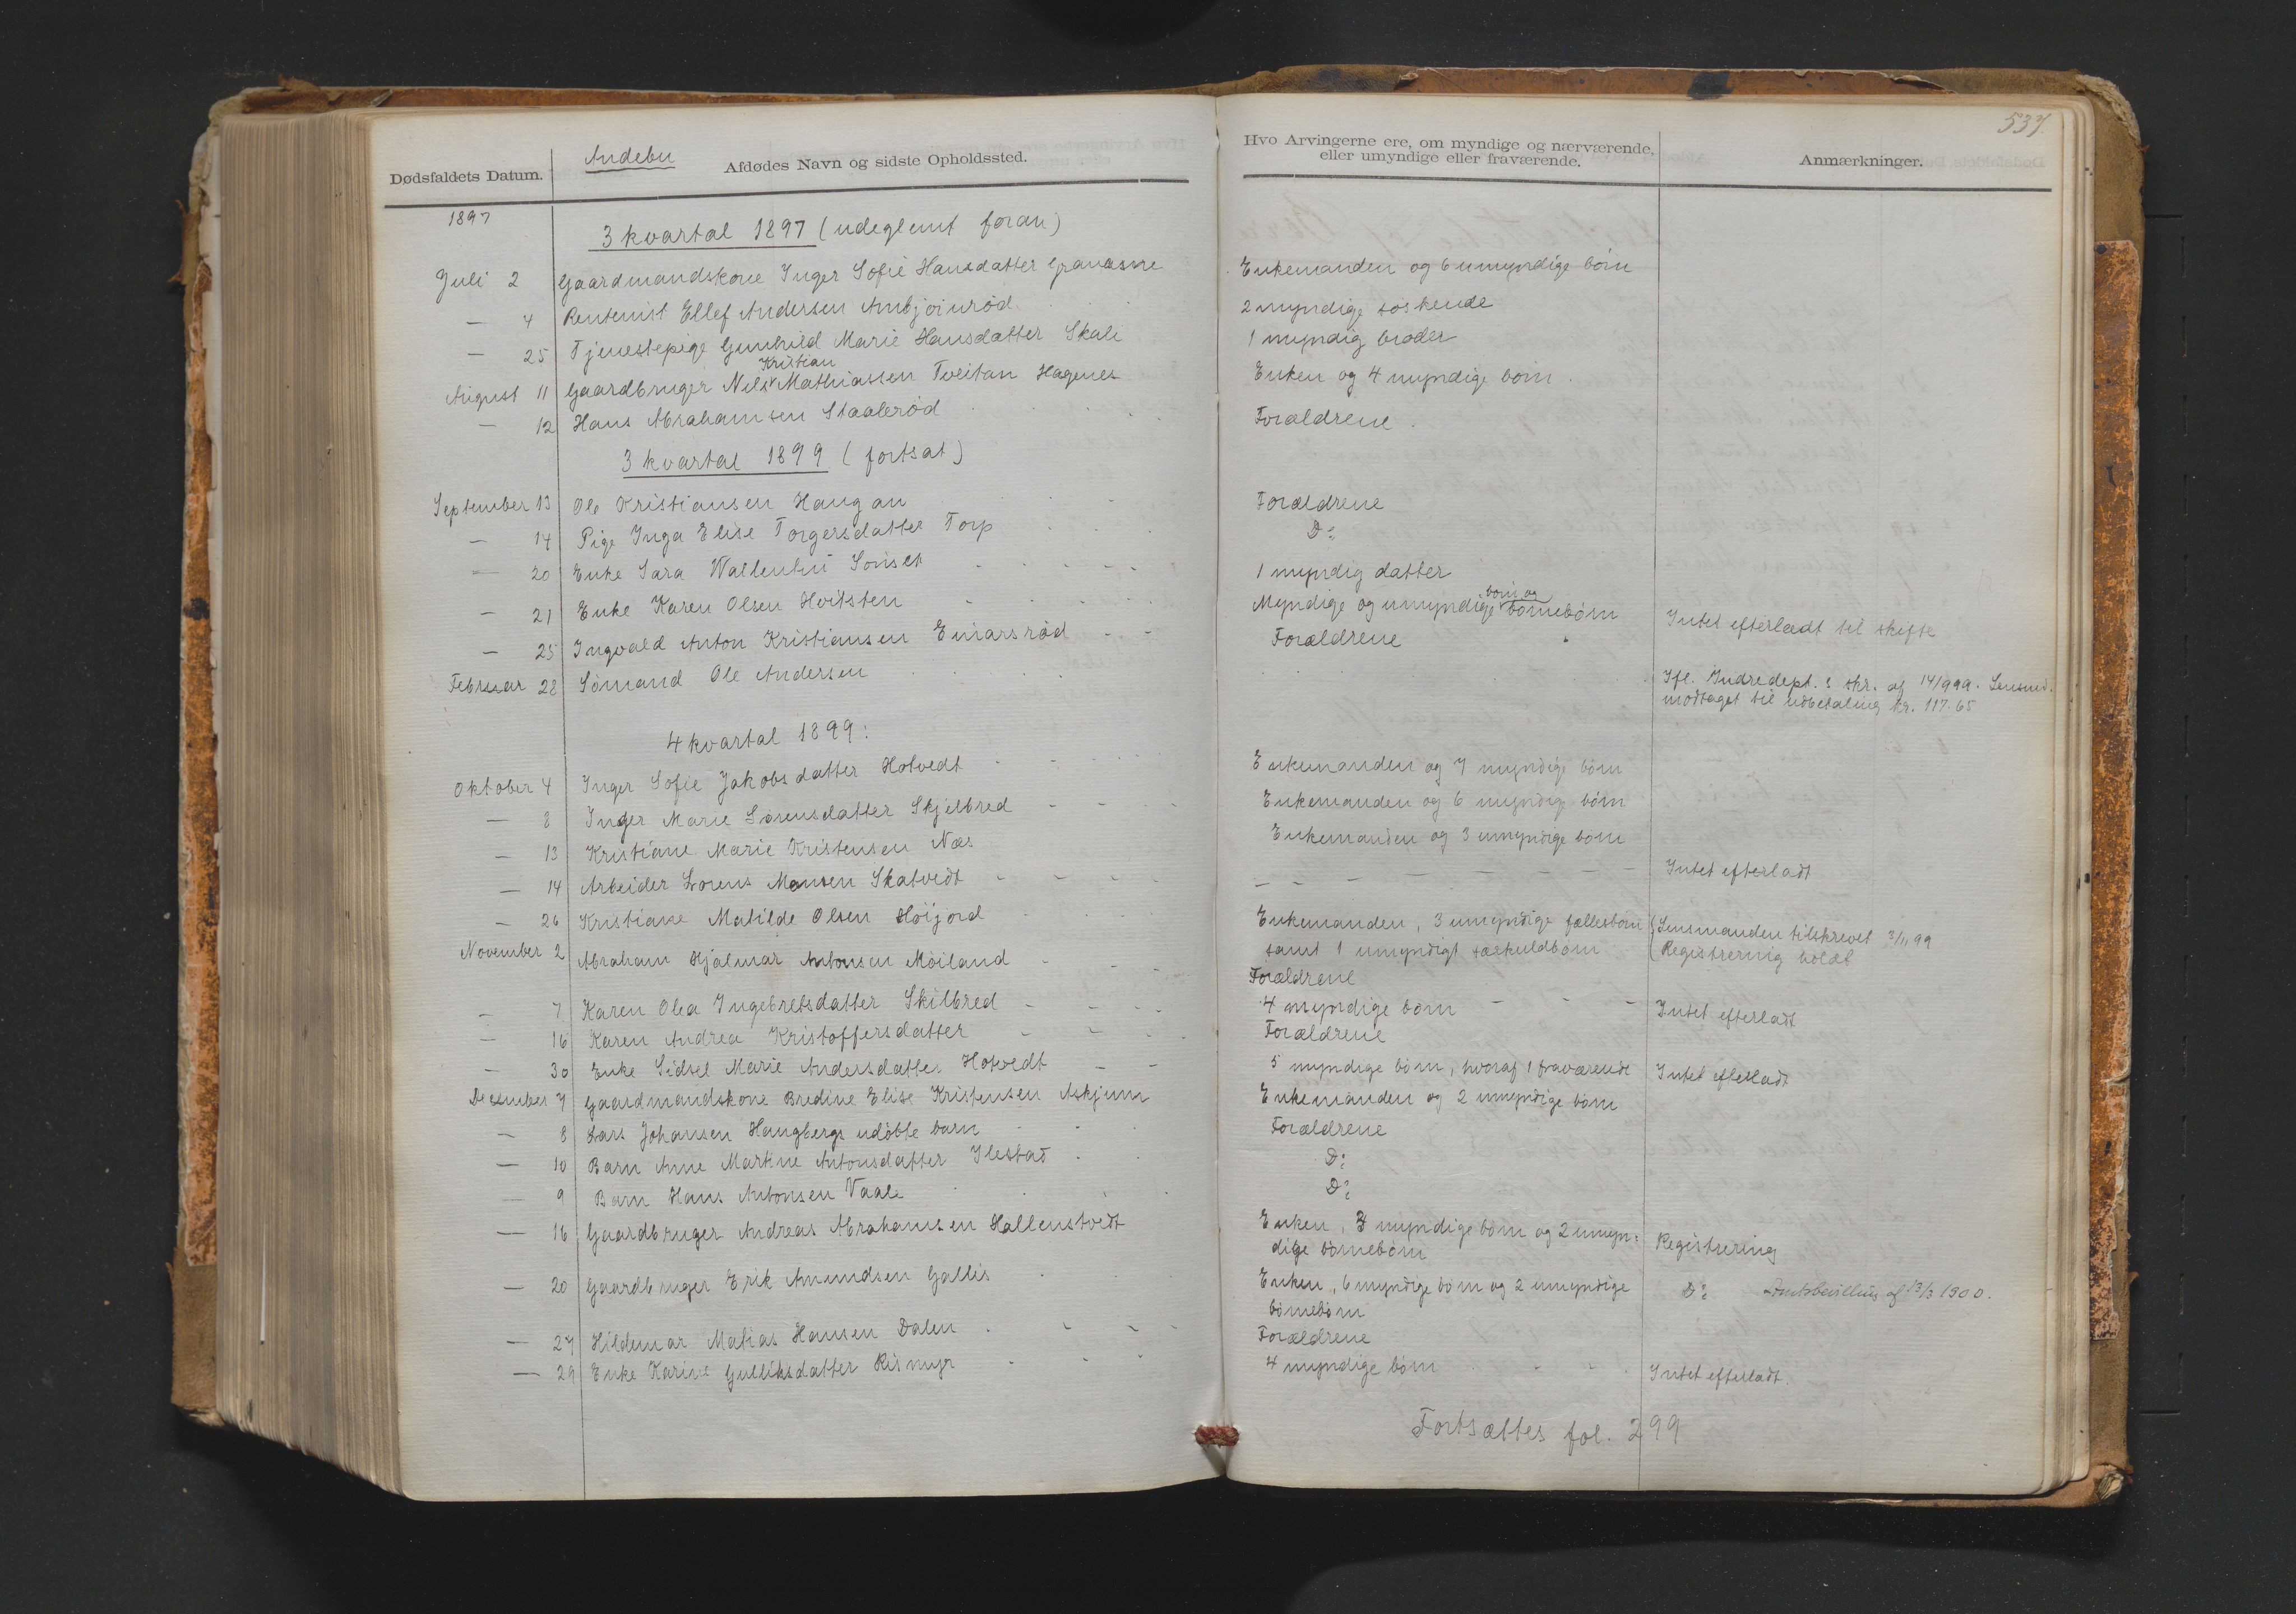 537.
Andebu
Dødsfaldets Datum. Afdødes Navn og sidste Opholdssted. Hvo Arvingerne ere, om myndige og nærværende, eller umyndige eller fraværende. Anmærkninger.
1897
3 kvartal 1897 (udeglemt foran)
Juli 2 Gaardmandskone Inger Sofie Hansdatter Enkemanden og 6 umyndige børn
— 4 Rentenist Ellef Andersen 2 myndige søskende
— 25 Tjenestepige Gunhild Marie Hansdatter Skali 1 myndig broder
Kristian
August 11 Gaardbruger Nils Mathiassen Tveitan Hagenes Enken og 4 myndige børn.
— 12 Hans Abrahamsen Staalerød Forældrene.
3 kvartal 1899 (fortsat)
September 13 Ole Kristiansen Haugan Forældrene
— 14 Pige Inga Elise Torgersdatter Torp Do
— 20 Enke Sara 1 myndig datter
børn og
— 21 Enke Karen Olsen Hvitsten Myndige og umyndige børnebørn Intet efterladt til skifte
— 25 Ingvald Anton Kristiansen Einarsrød Forældrene
Februar 28 Sømand Ole Andersen Ifl. Indredept.s skr. af 14/9 99. Lensmd.
modtaget til udbetaling kr. 117.65
4 kvartal 1899:
Oktober 4 Inger Sofie Jakobsdatter Hotvedt Enkemanden og 7 myndige børn
— 8 Inger Marie Sørensdatter Skjelbred Enkemanden og 6 myndige børn
— 13 Kristiane Marie Kristensen Næs Enkemanden og 3 umyndige børn
— 14 Arbeider Lorens Monsen Skatvedt — — — — — — — Intet efterladt
— 26 Kristiane Matilde Olsen Høijord Enkemanden, 3 umyndige fællesbørn (Lensmanden tilskrevet 3/11 99
samt 1 umyndigt særkuldbørn (Registrering holdt
November 2 Abraham Hjalmar Antonsen Møiland Forældrene
— 7 Karen Olea Ingebretsdatter Skilbred 4 myndige børn — — — Intet efterladt
— 16 Karen Andrea Kristoffersdatter Forældrene
— 30 Enke Sidsel Marie Andersdatter Hotvedt 5 myndige børn, hvoraf 1 fraværende Intet efterladt
December 7 Gaardmandskone Bredine Elise Kristensen Askjum Enkemanden og 2 umyndige børn
— 8 Lars Johansen Haugbergs udøbte barn Forældrene
— 10 Barn Anne Martine Antonsdatter Ilestad Do
— 9 Barn Hans Antonsen Vaale Do
— 16 Gaardbruger Andreas Abrahamsen Hallenstvedt Enken, 3 myndige børn og 2 umyn=
dige børnebørn Registrering
— 20 Gaardbruger Erik Amundsen Gallis Enken, 6 myndige børn og 2 umyndige Do Amtsbevilling af 13/3 1900.
børnebørn
— 27 Hildemar Matias Hansen Dalen Forældrene
— 29 Enke Karine Gulliksdatter Rismyr 4 myndige børn Intet efterladt.
Fortsættes fol. 299